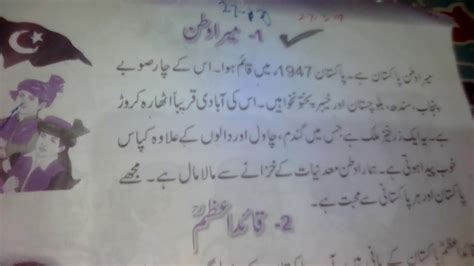 1- میرا وطن
میرا وطن پاکستان ہے۔ پاکستان 1947ء میں قائم ہوا۔ اس کے چار صوبے
پنجاب، سندھ، بلوچستان اور خیبر پختونخوا ہیں۔ اس کی آبادی قریباً اٹھارہ کروڑ
ہے۔ یہ ایک زرخیز ملک ہے جس میں گندم، چاول اور دالوں کے علاوہ کپاس
خوب پیدا ہوتی ہے۔ ہمارا وطن معدنیات کے خزانے سے مالا مال ہے۔ مجھے
پاکستان اور ہر پاکستانی سے محبت ہے۔
2- قائداعظمؒ
پاکستان کے بانی ہیں۔